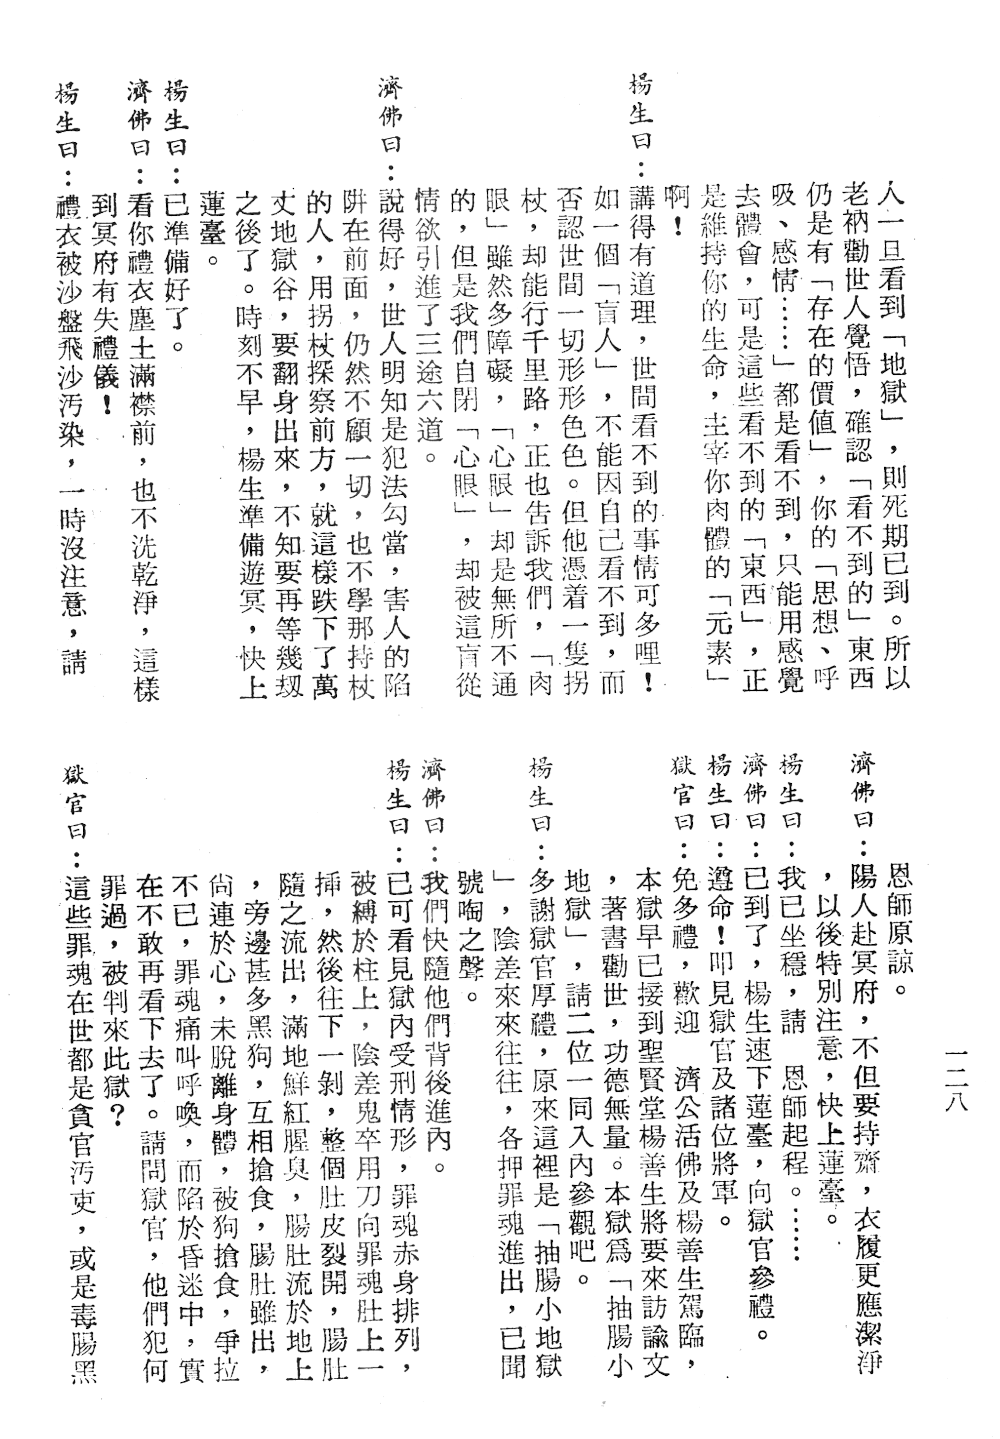 人一旦看到「地獄」，則死期已到。所以
老衲勸世人覺悟，確認「看不到的」東西
仍是有「存在的價值」，你的「思想、呼
吸、感情……」都是看不到，只能用感覺
去體會，可是這些看不到的「東西」，正
是維持你的生命，主宰你肉體的「元素」
啊！
楊生曰：講得有道理，世間看不到的事情可多哩！
如一個「盲人」，不能因自己看不到，而
否認世間一切形形色色。但他憑着一隻拐
杖，却能行千里路，正也告訴我們，「肉
眼」雖然多障礙，「心眼」却是無所不通
的，但是我們自閉「心眼」，却被這盲從
情欲引進了三途六道。
濟佛曰：說得好，世人明知是犯法勾當，害人的陷
阱在前面，仍然不顧一切，也不學那持杖
的人，用拐杖探察前方，就這樣跌下了萬
丈地獄谷，要翻身出來，不知要再等幾刼
之後了。時刻不早，楊生準備遊冥，快上
蓮臺。
楊生曰：已準備好了。
濟佛曰：看你禮衣塵土滿襟前，也不洗乾淨，這樣
到冥府有失禮儀！
楊生曰：禮衣被沙盤飛沙汚染，一時沒注意，請
恩師原諒。
濟佛曰：陽人赴冥府，不但要持齋，衣履更應潔淨
，以後特別注意，快上蓮臺。
楊生曰：我已坐穩，請　恩師起程。……
濟佛曰：已到了，楊生速下蓮臺，向獄官參禮。
楊生曰：遵命！叩見獄官及諸位將軍。
獄官曰：免多禮，歡迎　濟公活佛及楊善生駕臨，
本獄早已接到聖賢堂楊善生將要來訪諭文
，著書勸世，功德無量。本獄爲「抽腸小
地獄」，請二位一同入內參觀吧。
楊生曰：多謝獄官厚禮，原來這裡是「抽腸小地獄
」，陰差來來往往，各押罪魂進出，已聞
號啕之聲。
濟佛曰：我們快隨他們背後進內。
楊生曰：已可看見獄內受刑情形，罪魂赤身排列，
被縛於柱上，陰差鬼卒用刀向罪魂肚上一
揷，然後往下一剝，整個肚皮裂開，腸肚
隨之流出，滿地鮮紅腥臭，腸肚流於地上
，旁邊甚多黑狗，互相搶食，腸肚雖出，
尙連於心，未脫離身體，被狗搶食，爭拉
不已，罪魂痛叫呼喚，而陷於昏迷中，實
在不敢再看下去了。請問獄官，他們犯何
罪過，被判來此獄？
獄官曰：這些罪魂在世都是貪官汚吏，或是毒腸黑
一二八